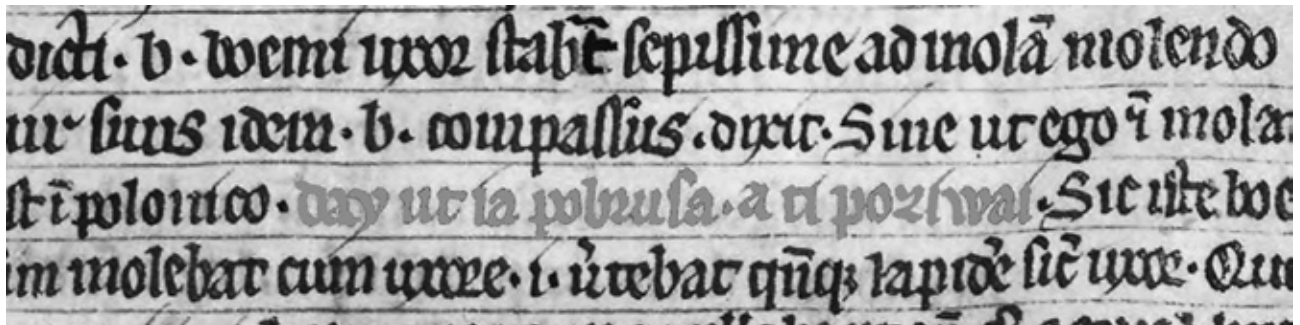 dicti · b · boemi uxor stabat sepissime ad molā molendo
ur suus idem · b · compassus · dixit · Sine ut ego ī molam
st ī polonico · day ut ia pobrusa · a ti poziwai · Sic iste boe
im molebat cum uxore · i · v̄tebat qn̄q; lapidē sic̄ uxor · Qu